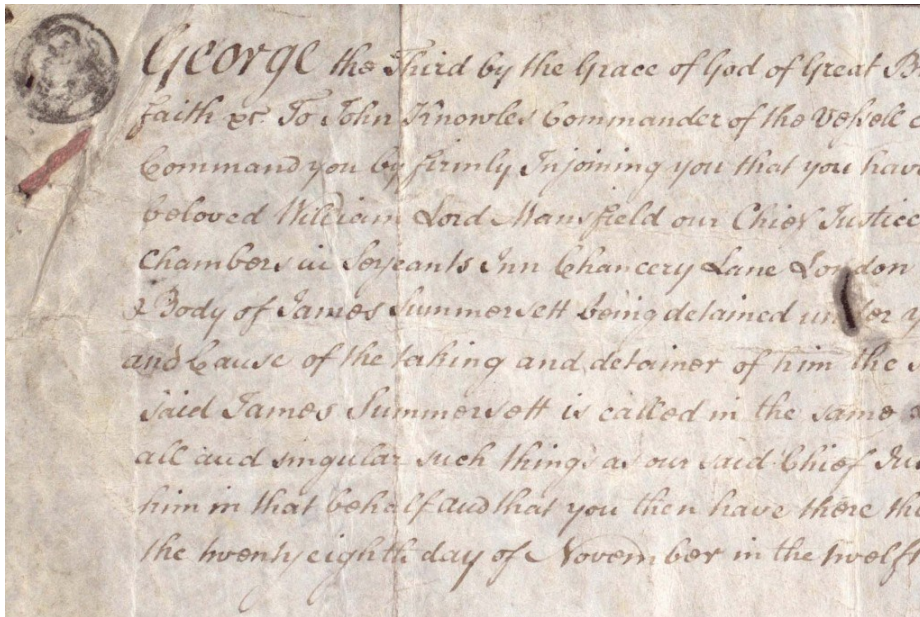 George the Third by the Grace of God of Great B
faith &c To John Knowles Commander of the Vessell
Command you by firmly Injoining you that you have
beloved William Lord Mansfield our Chief Justice
Chambers in Serjeants Inn Chancery Lane London
& Body of James Summersett being detained under y
and Cause of the taking and detainer of him the s
said James Summersett is called in the same
all and singular such things as our said Chief Jus
him in that behalf and that you then have there th
the twenty eighth day of November in the twelf